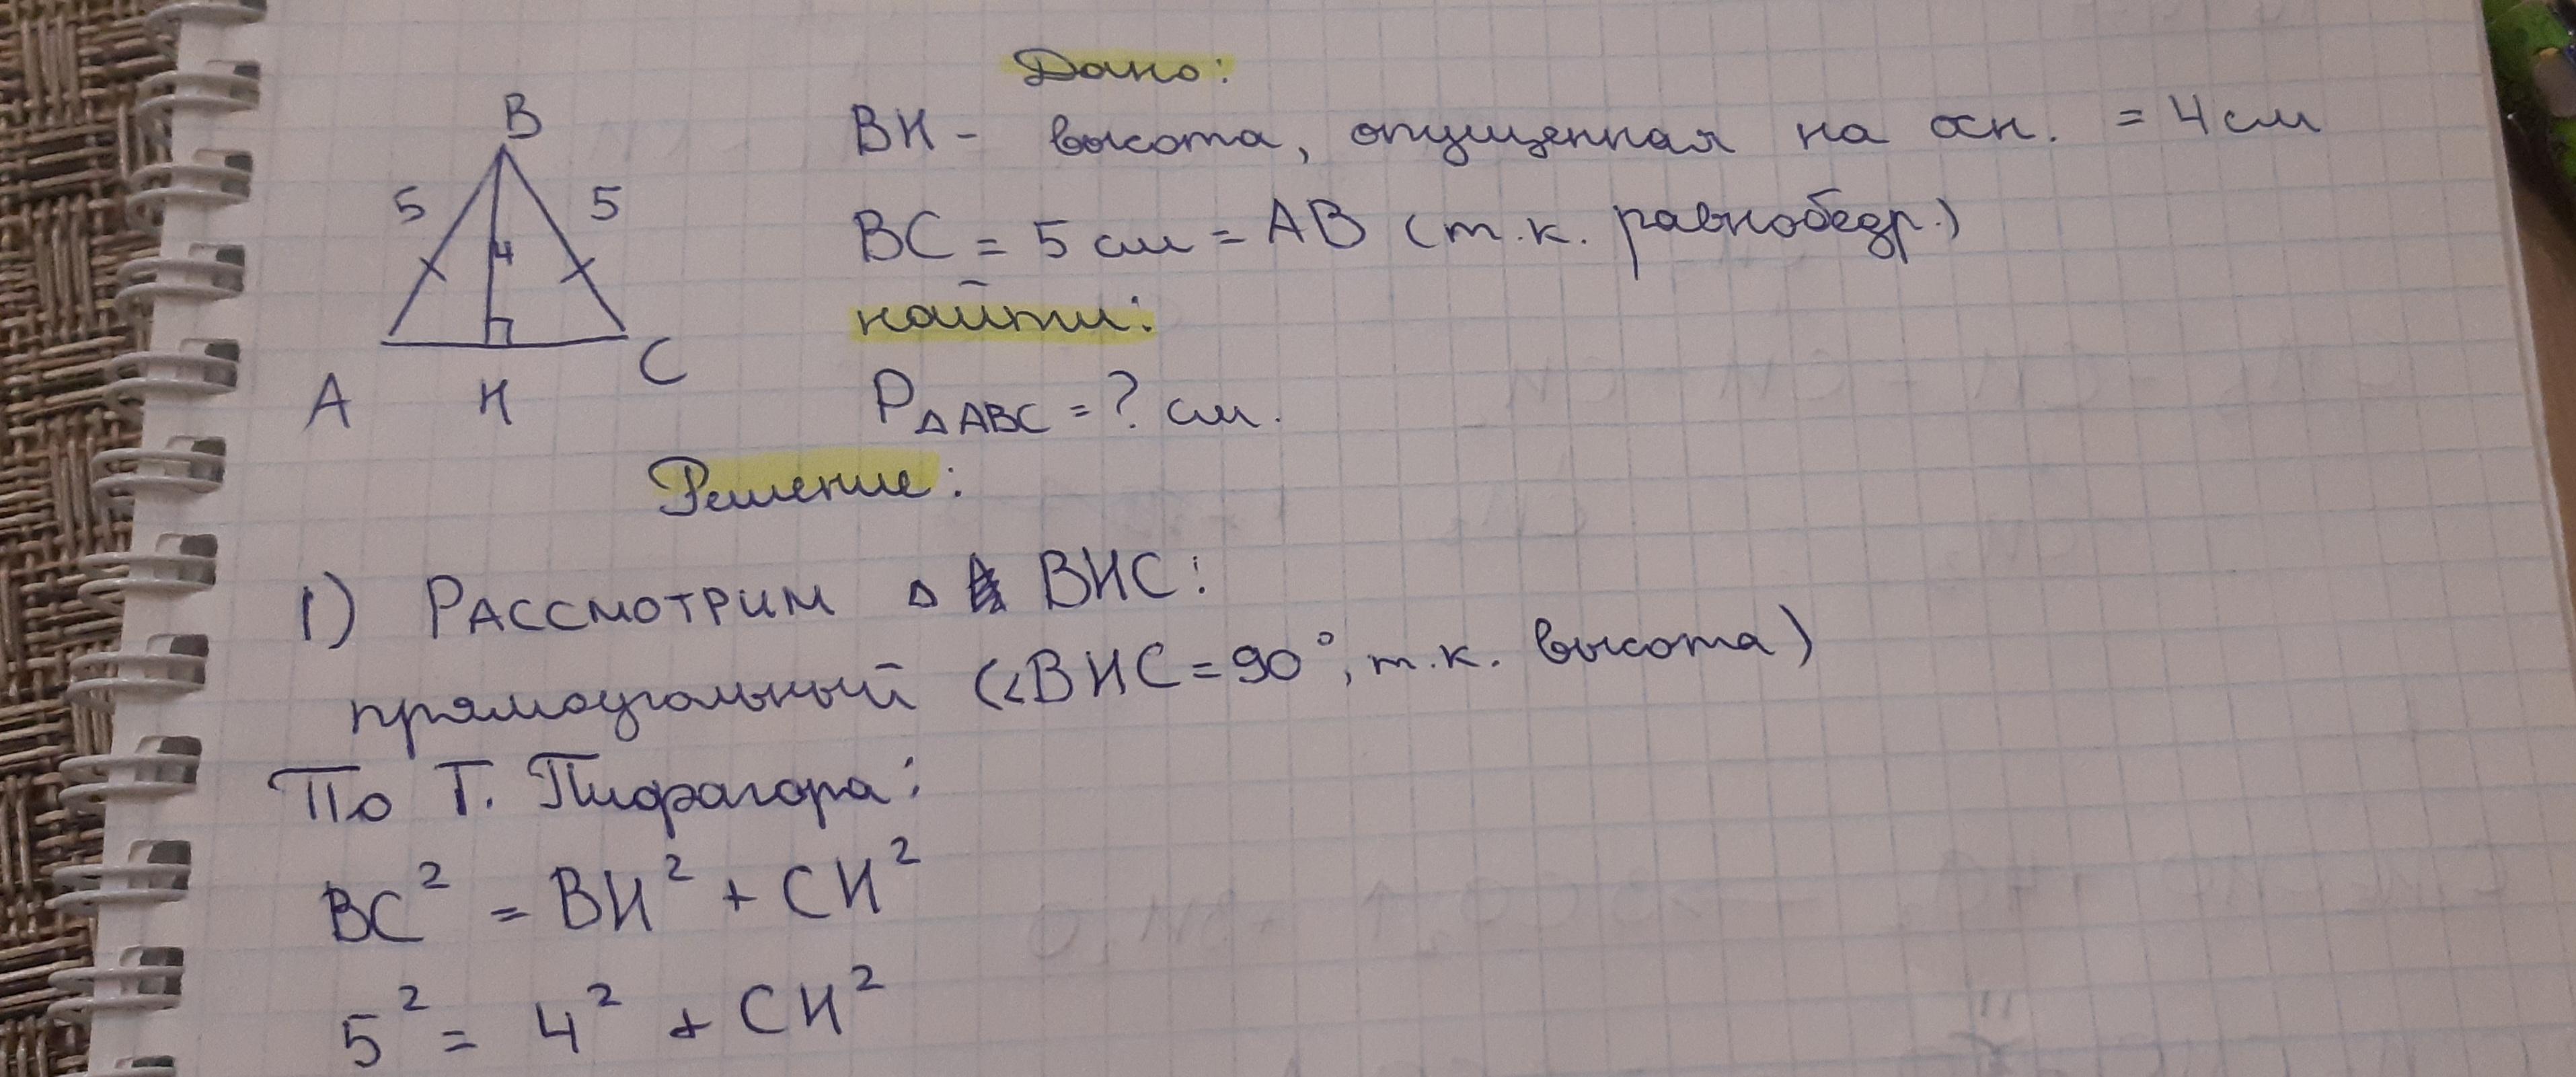 Дано:
B
BH - высота, опущенная на осн. = 4 см
5 5
BC = 5 см = AB (т.к. равнобедр.)
4
найти:
A H C
P△ABC = ? см.
Решение:
1) Рассмотрим △ BHC:
прямоугольный (∠BHC = 90°, т.к. высота)
По Т. Пифагора:
BC² = BH² + CH²
5² = 4² + CH²